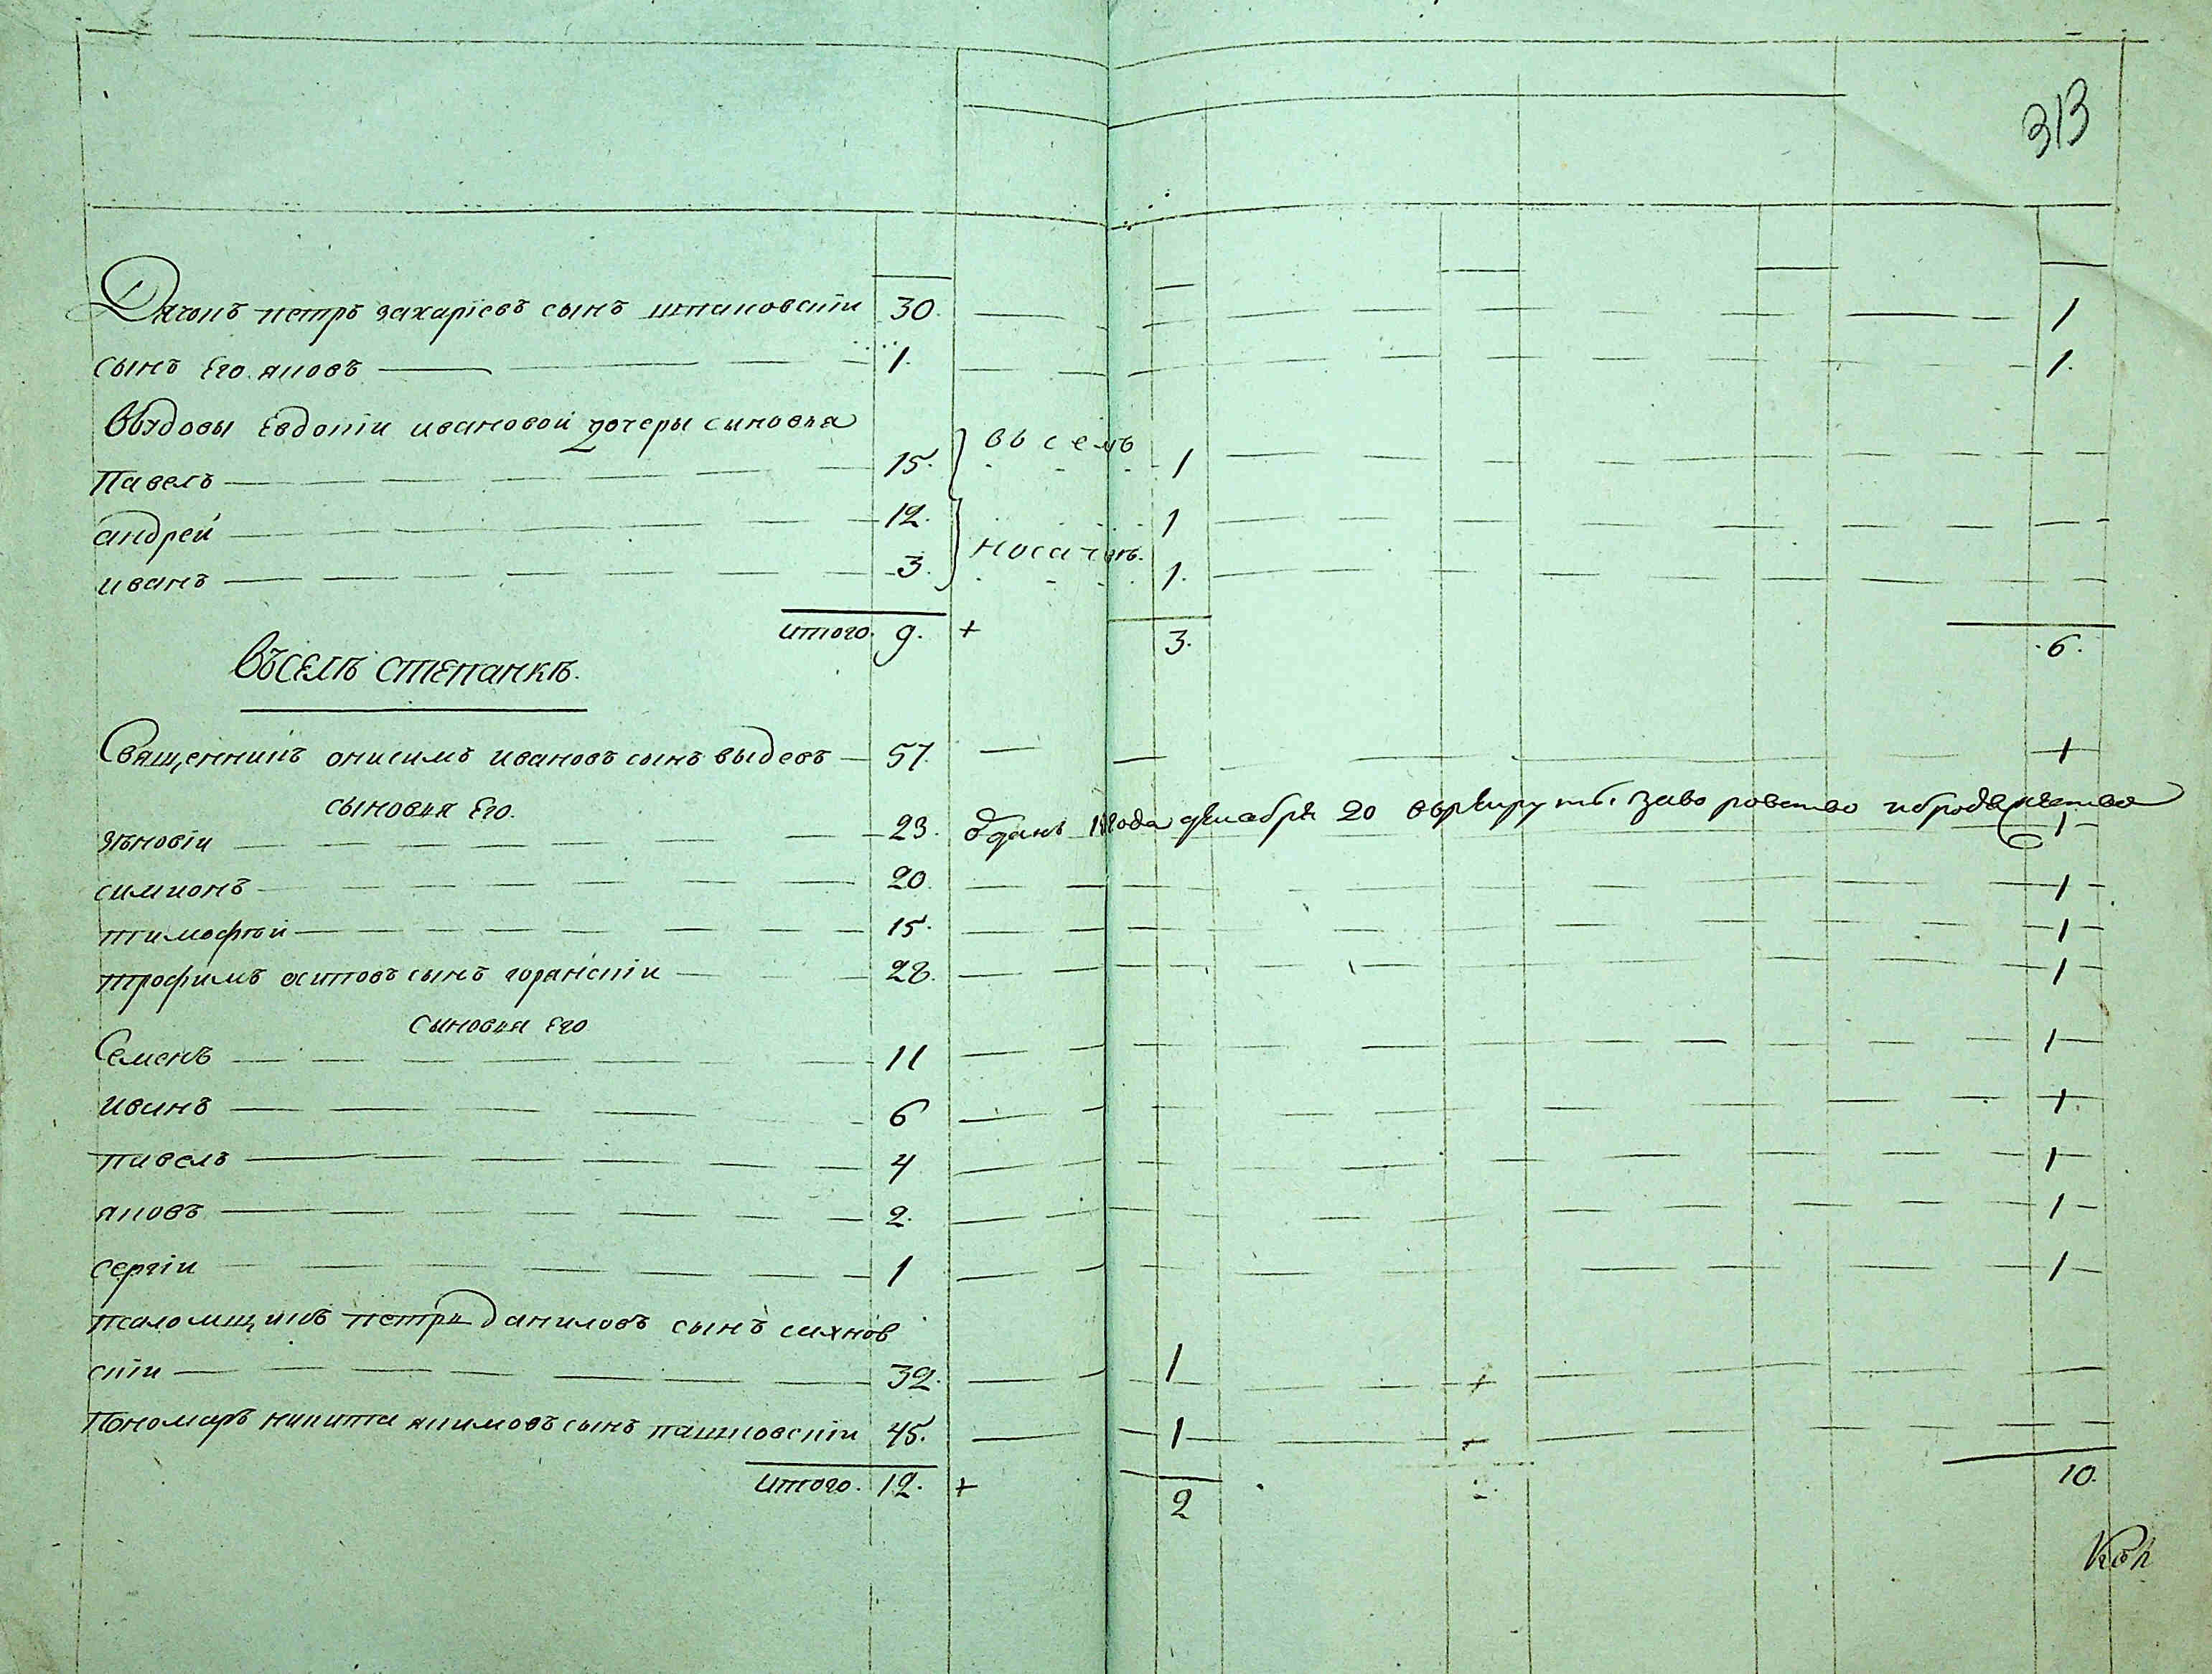 313
Дячокъ петръ захарiевъ сынъ шпаковскiи 30. 1
сынъ Его яковъ 1. 1.
Вдовы Евдокiи ивановой дочеры сыновья
Павелъ 15. въ селѣ 1
андрей 12. 1
иванъ 3. носачовѣ. 1.
итого. 9. + 3. 6.
Въселѣ степанкѣ.
Священникъ онисимъ ивановъ сынъ выдевъ 57. 1
сыновья Его.
зѣновiи 23. отданъ года декабря 20 врекруты. 1
симионъ 20. 1
тимофѣй 15. 1
трофимъ осиповъ сынъ горянскiи 28. 1
Сыновья Его
Семенъ 11 1
иванъ 6 1.
павелъ 4 1
яковъ 2. 1
сергiи 1 1
псаломщикъ петръ Даниловъ сынъ сахнов
скiи 32. 1
Пономарь никита якимовъ сынъ пашковскiи 45. 1
итого. 12. + 2 10.